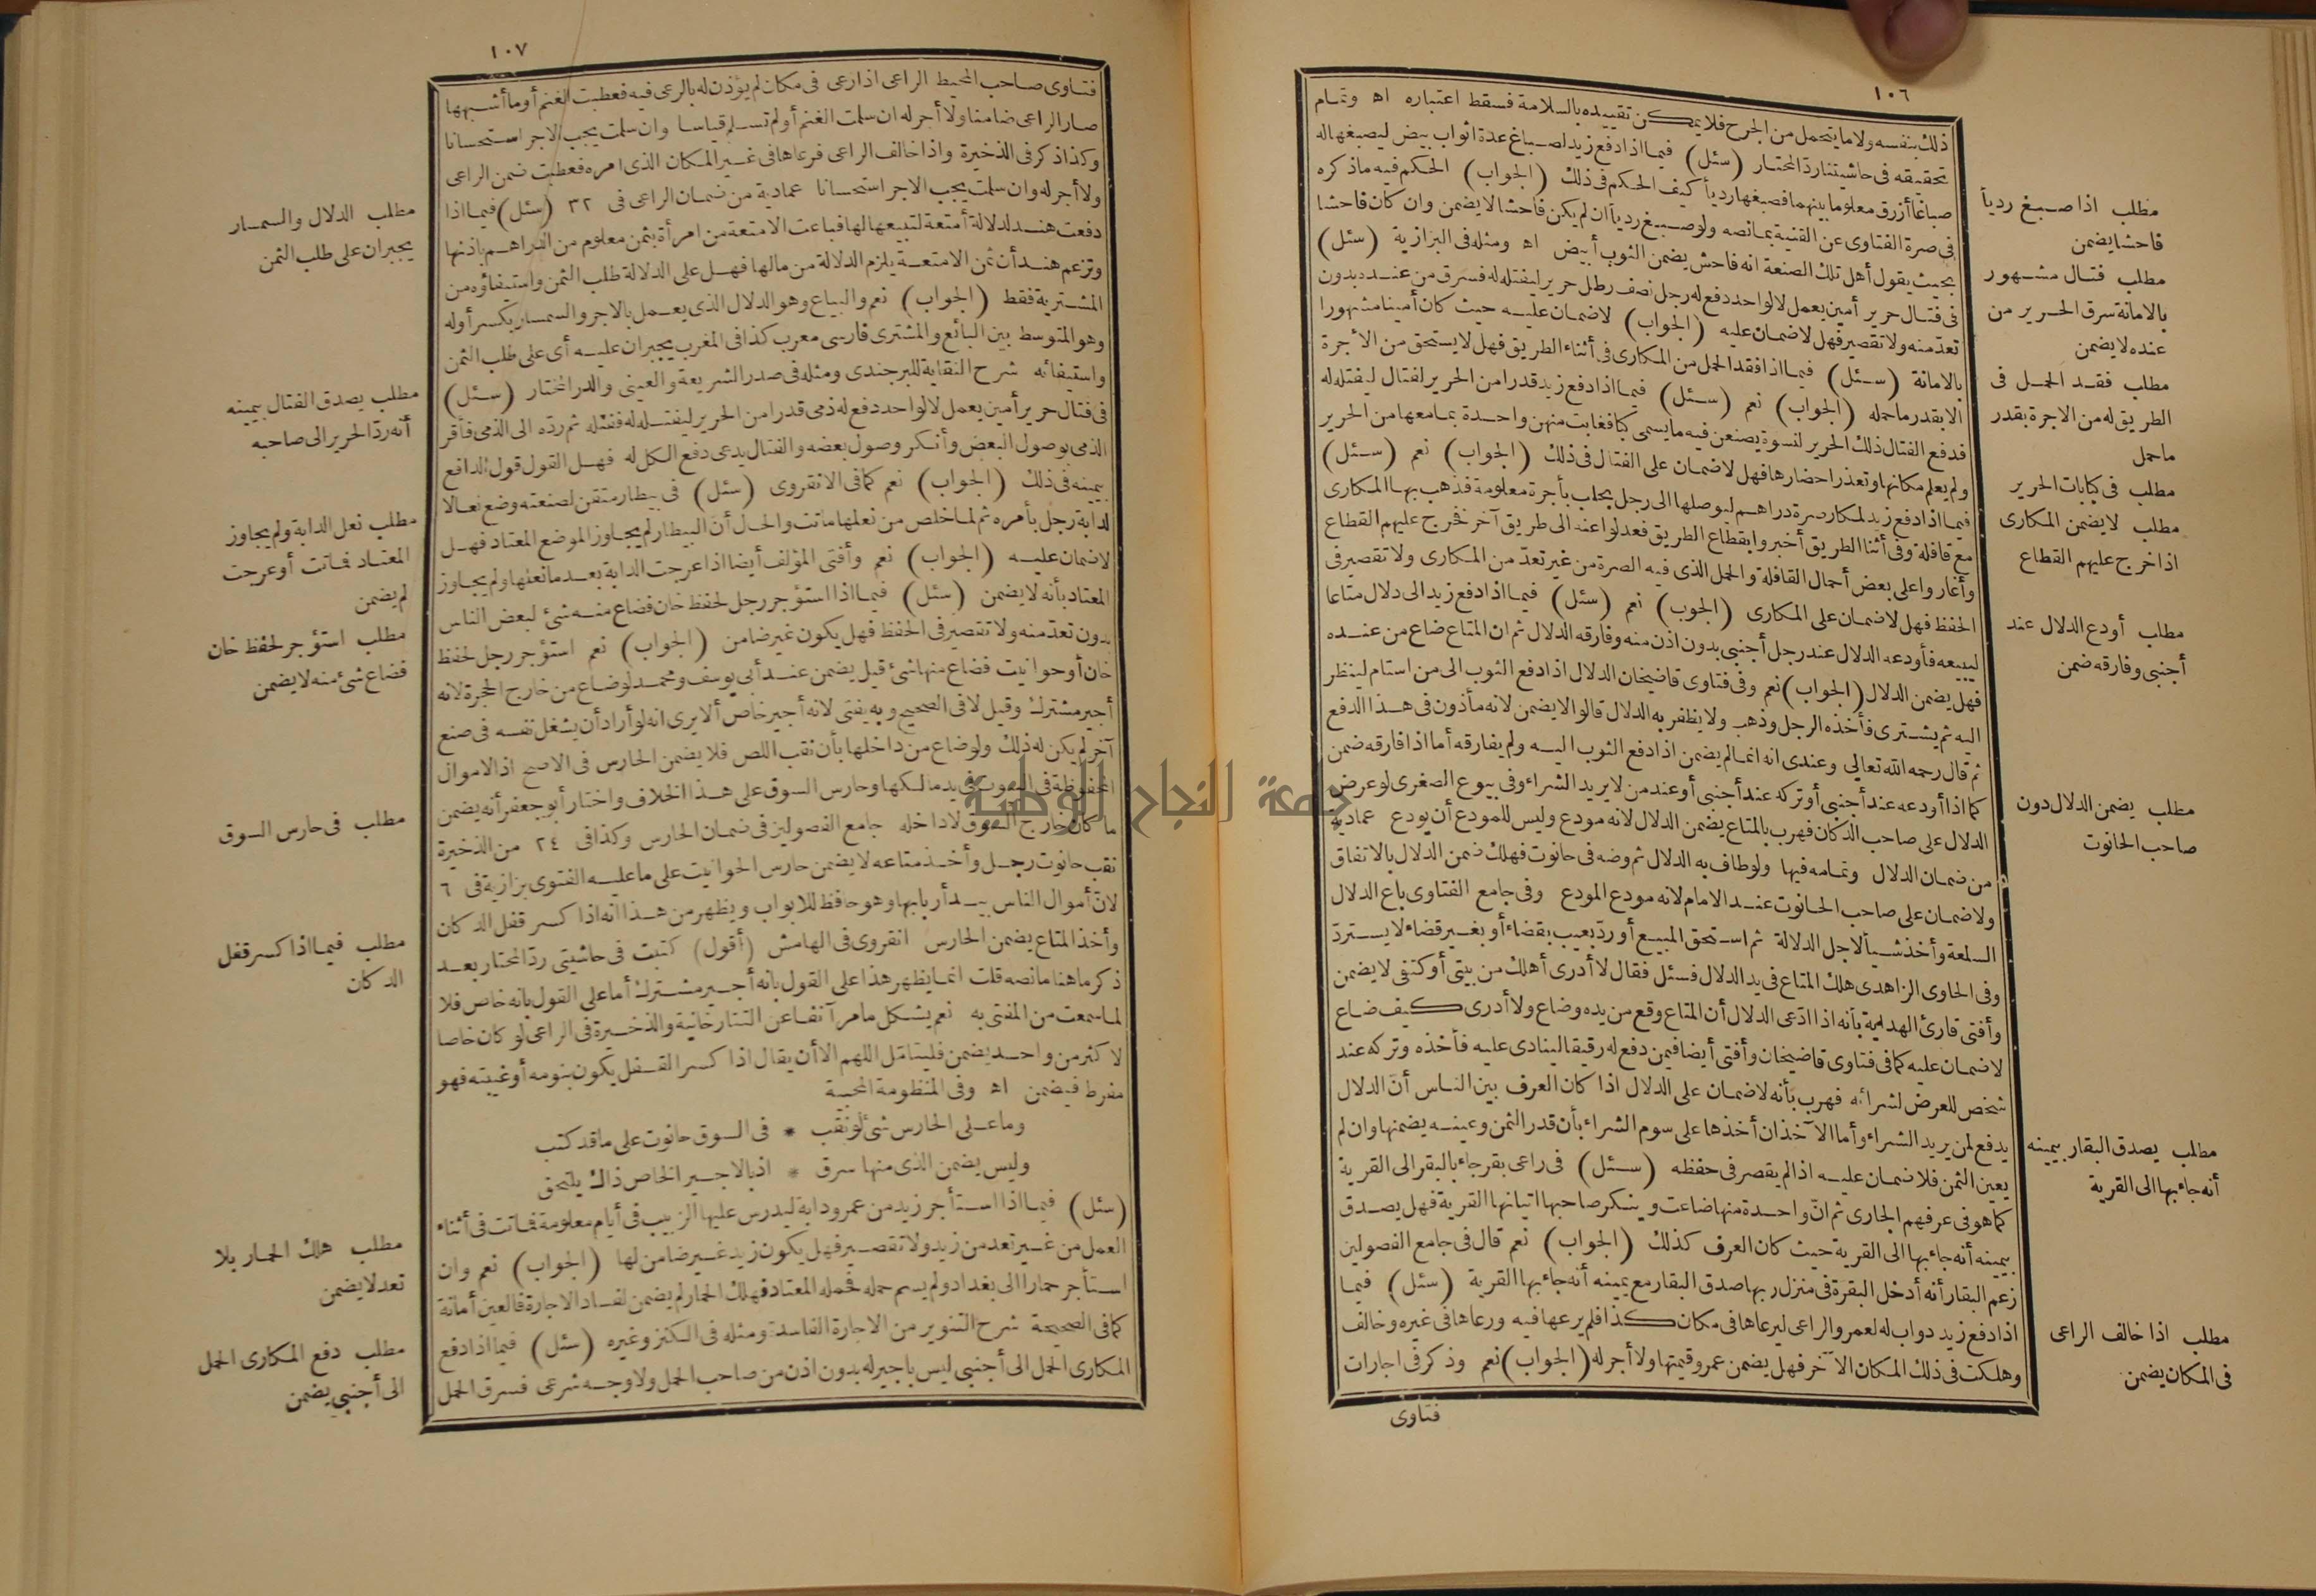 ١٠٦
ذلك بنفسه ولا ما يتحمل من الجرح فلا يمكن تقييده بالسلامة فسقط اعتباره اه وتمام
تحقيقه في حاشيتنا رد المحتار (سئل) فيما اذا دفع زيد لصباغ عدة اثواب بيض ليصبغها له
صباغا أزرق معلوما بينهما فصبغها رديأ كيف الحكم في ذلك (الجواب) الحكم فيه ما ذكره
في صرة الفتاوى عن القنية بما نصه ولو صبغ رديأ ان لم يكن فاحشا لا يضمن وان كان فاحشا
بحيث يقول أهل تلك الصنعة انه فاحش يضمن الثوب أبيض اه ومثله في البزازية (سئل)
في فتال حرير أمين يعمل لا لواحد دفع له رجل نصف رطل حرير ليفتله له فسرق من عنده بدون
تعد منه ولا تقصير فهل لا ضمان عليه (الجواب) لا ضمان عليه حيث كان أمينا مشهورا
بالامانة (سئل) فيما اذا فقد الحمل من المكارى في أثناء الطريق فهل لا يستحق من الأجرة
الا بقدر ما حمله (الجواب) نعم (سئل) فيما اذا دفع زيد قدرا من الحرير لفتال ليفتله له
فدفع الفتال ذلك الحرير لنسوة يصنعن فيه ما يسمى كبا فغابت منهن واحدة بما معها من الحرير
ولم يعلم مكانها وتعذر احضارها فهل لا ضمان على الفتال في ذلك (الجواب) نعم (سئل)
فيما اذا دفع زيد لمكار صرة دراهم ليوصلها الى رجل بحلب بأجرة معلومة فذهب بها المكارى
مع قافلة وفي أثنا الطريق أخبروا بقطاع الطريق فعدلوا عنه الى طريق آخر فخرج عليهم القطاع
وأغاروا على بعض أحمال القافلة والحمل الذى فيه الصرة من غير تعد من المكارى ولا تقصير في
الحفظ فهل لا ضمان على المكارى (الجوب) نعم (سئل) فيما اذا دفع زيد الى دلال متاعا
ليبيعه فأودعه الدلال عند رجل أجنبي بدون اذن منه وفارقه الدلال ثم ان المتاع ضاع من عنده
فهل يضمن الدلال (الجواب) نعم وفي فتاوى قاضيخان الدلال اذا دفع الثوب الى من استام لينظر
اليه ثم يشترى فأخذه الرجل وذهب ولا يظفر به الدلال قالوا لا يضمن لانه مأذون في هذا الدفع
ثم قال رحمه الله تعالى وعندى انه انما لم يضمن اذا دفع الثوب اليه ولم يفارقه أما اذا فارقه ضمن
كما اذا أودعه عند أجنبي أو تركه عند أجنبي أو عند من لا يريد الشراء وفي بيوع الصغرى لو عرض
الدلال على صاحب الدكان فهرب بالمتاع يضمن الدلال لانه مودع وليس للمودع أن يودع عمادية
من ضمان الدلال وتمامه فيها ولو طاف به الدلال ثم وضعه في حانوت فهلك ضمن الدلال بالاتفاق
ولا ضمان على صاحب الحانوت عند الامام لانه مودع المودع وفي جامع الفتاوى باع الدلال
السلعة وأخذ شيأ لاجل الدلالة ثم استحق المبيع أو رد بعيب بقضاء أو بغير قضاء لا يسترد
وفي الحاوى الزاهدى هلك المتاع في يد الدلال فسئل فقال لا أدرى أهلك من بيتي أو كتفي لا يضمن
وأفتى قارئ الهداية بأنه اذا ادعى الدلال أن المتاع وقع من يده وضاع ولا أدرى كيف ضاع
لا ضمان عليه كما في فتاوى قاضيخان وأفتى أيضا فيمن دفع له رقيقا لينادى عليه فأخذه وتركه عند
شخص للعرض لشرائه فهرب بأنه لا ضمان على الدلال اذا كان العرف بين الناس أن الدلال
يدفع لمن يريد الشراء وأما الآخذ ان أخذها على سوم الشراء بأن قدر الثمن وعينه يضمنها وان لم
يعين الثمن فلا ضمان عليه اذا لم يقصر في حفظه (سئل) في راعى بقر جاء بالبقر الى القرية
كما هو في عرفهم الجارى ثم ان واحدة منها ضاعت وينكر صاحبها اتيانها القرية فهل يصدق
بيمينه أنه جاء بها الى القرية حيث كان العرف كذلك (الجواب) نعم قال في جامع الفصولين
زعم البقار أنه أدخل البقرة في منزل ربها صدق البقار مع يمينه أنه جاء بها القرية (سئل) فيما
اذا دفع زيد دواب له لعمرو الراعى ليرعاها في مكان كذا فلم يرعها فيه ورعاها في غيره وخالف
وهلكت في ذلك المكان الآخر فهل يضمن عمرو قيمتها ولا أجر له (الجواب) نعم وذكر في اجارات
فتاوى
مطلب اذا صبغ رديأ
فاحشا يضمن
مطلب فتال مشهور
بالامانة سرق الحرير من
عنده لا يضمن
مطلب فقد الحمل في
الطريق له من الاجرة بقدر
ما حمل
مطلب في كبابات الحرير
مطلب لا يضمن المكارى
اذا خرج عليهم القطاع
مطلب أودع الدلال عند
أجنبي وفارقه ضمن
مطلب يضمن الدلال دون
صاحب الحانوت
مطلب يصدق البقار بيمينه
أنه جاء بها الى القرية
مطلب اذا خالف الراعى
في المكان يضمن
١٠٧
فتاوى صاحب المحيط الراعى اذا رعى في مكان لم يؤذن له بالرعى فيه فعطبت الغنم أو ما أشبهها
صار الراعى ضامنا ولا أجر له ان سلمت الغنم أو لم تسلم قياسا وان سلمت يجب الاجر استحسانا
وكذا ذكر في الذخيرة واذا خالف الراعى فرعاها في غير المكان الذى امره فعطبت ضمن الراعى
ولا أجر له وان سلمت يجب الاجر استحسانا عمادية من ضمان الراعى في ٣٢ (سئل) فيما اذا
دفعت هند لدلالة أمتعة لتبيعها لها فباعت الامتعة من امرأة بثمن معلوم من الدراهم باذنها
وتزعم هند أن ثمن الامتعة يلزم الدلالة من مالها فهل على الدلالة طلب الثمن واستيفاؤه من
المشترية فقط (الجواب) نعم والبياع وهو الدلال الذى يعمل بالاجر والسمسار بكسر أوله
وهو المتوسط بين البائع والمشترى فارسى معرب كذا في المغرب يجبران عليه أى على طلب الثمن
واستيفائه شرح النقاية للبرجندى ومثله في صدر الشريعة والعيني والدر المختار (سئل)
في فتال حرير أمين يعمل لا لواحد دفع له ذمي قدرا من الحرير ليفتله له ففتله ثم رده الى الذمي فأقر
الذمي بوصول البعض وأنكر وصول بعضه والفتال يدعى دفع الكل له فهل القول قول الدافع
بيمينه في ذلك (الجواب) نعم كما في الانقروى (سئل) في بيطار متقن لصنعته وضع نعالا
لدابة رجل بأمره ثم لما خلص من نعلها ماتت والحال أن البيطار لم يجاوز الموضع المعتاد فهل
لا ضمان عليه (الجواب) نعم وأفتى المؤلف أيضا اذا عرجت الدابة بعد ما نعلها ولم يجاوز
المعتاد بأنه لا يضمن (سئل) فيما اذا استؤجر رجل لحفظ خان فضاع منه شئ لبعض الناس
بدون تعد منه ولا تقصير في الحفظ فهل يكون غير ضامن (الجواب) نعم استؤجر رجل لحفظ
خان أو حوانيت فضاع منها شئ قيل يضمن عند أبي يوسف ومحمد لو ضاع من خارج الحجرة لانه
أجير مشترك وقيل لا في الصحيح وبه يفتى لانه أجير خاص ألا يرى انه لو أراد أن يشغل نفسه في صنع
آخر لم يكن له ذلك ولو ضاع من داخلها بأن نقب اللص فلا يضمن الحارس في الاصح اذ الاموال
المحفوظة في البيوت في يد مالكها وحارس السوق على هذا الخلاف واختار أبو جعفر أنه يضمن
ما كان خارج السوق لا داخله جامع الفصولين في ضمان الحارس وكذا في ٢٤ من الذخيرة
نقب حانوت رجل وأخذ متاعه لا يضمن حارس الحوانيت على ما عليه الفتوى بزازية في ٦
لان أموال الناس بيد أربابها وهو حافظ للابواب ويظهر من هذا انه اذا كسر قفل الدكان
وأخذ المتاع يضمن الحارس انقروى في الهامش (أقول) كتبت في حاشيتي رد المحتار بعد
ذكر ما هنا ما نصه قلت انما يظهر هذا على القول بأنه أجير مشترك أما على القول بأنه خاص فلا
لما سمعت من المفتى به نعم يشكل ما مر آنفا عن التتارخانية والذخيرة في الراعى لو كان خاصا
لا كثر من واحد يضمن فليتأمل اللهم الا أن يقال اذا كسر القفل يكون بنومه أو غيبته فهو
مفرط فيضمن اه وفي المنظومة المحبية
وما على الحارس شئ لو نقب * في السوق حانوت على ما قد كتب
وليس يضمن الذى منها سرق * اذ بالاجير الخاص ذاك يلتحق
(سئل) فيما اذا استأجر زيد من عمرو دابة ليدرس عليها الزبيب في أيام معلومة فماتت في أثناء
العمل من غير تعد من زيد ولا تقصير فهل يكون زيد غير ضامن لها (الجواب) نعم وان
استأجر حمارا الى بغداد ولم يسم حمله فحمله المعتاد فهلك الحمار لم يضمن لفساد الاجارة فالعين أمانة
كما في الصحيحة شرح التنوير من الاجارة الفاسدة ومثله في الكنز وغيره (سئل) فيما اذا دفع
المكارى الحمل الى أجنبي ليس باجير له بدون اذن من صاحب الحمل ولا وجه شرعى فسرق الحمل
مطلب الدلال والسمسار
يجبران على طلب الثمن
مطلب يصدق الفتال بيمينه
أنه رد الحرير الى صاحبه
مطلب نعل الدابة ولم يجاوز
المعتاد فماتت أو عرجت
لم يضمن
مطلب استؤجر لحفظ خان
فضاع شئ منه لا يضمن
مطلب في حارس السوق
مطلب فيما اذا كسر قفل
الدكان
مطلب هلك الحمار بلا
تعد لا يضمن
مطلب دفع المكارى الحمل
الى أجنبي يضمن
جامعة النجاح الوطنية